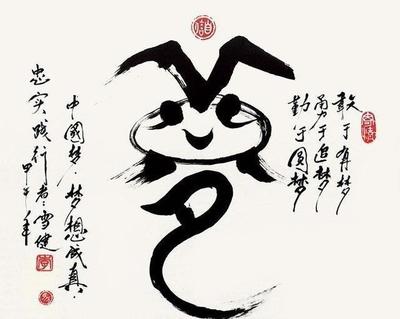 敢于有梦
勇于追梦
勤于圆梦
梦
中国梦·梦想成真·
忠实践行者·雪健
甲午年